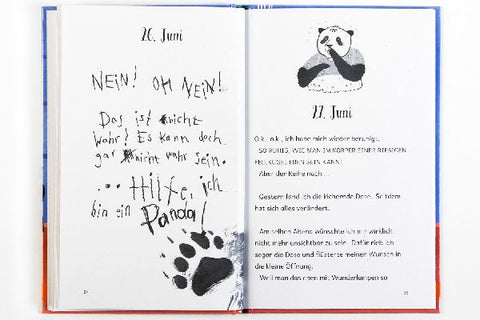 26. Juni
NEIN! OH NEIN!
Das ist nicht
wahr! Es kann doch
gar nicht wahr sein.
... Hilfe, ich
bin ein Panda!
24
27. Juni
O.k., o.k., ich habe mich wieder beruhigt.
SO RUHIG, WIE MAN IM KÖRPER EINER RIESIGEN
FELLKUGEL EBEN SEIN KANN!
Aber der Reihe nach ...
Gestern fand ich die kichernde Dose. Seitdem
hat sich alles verändert.
Am selben Abend wünschte ich mir wirklich,
nicht mehr unsichtbar zu sein. Dafür rieb ich
sogar die Dose und flüsterte meinen Wunsch in
die kleine Öffnung.
Weil man das eben mit Wunderlampen so
25